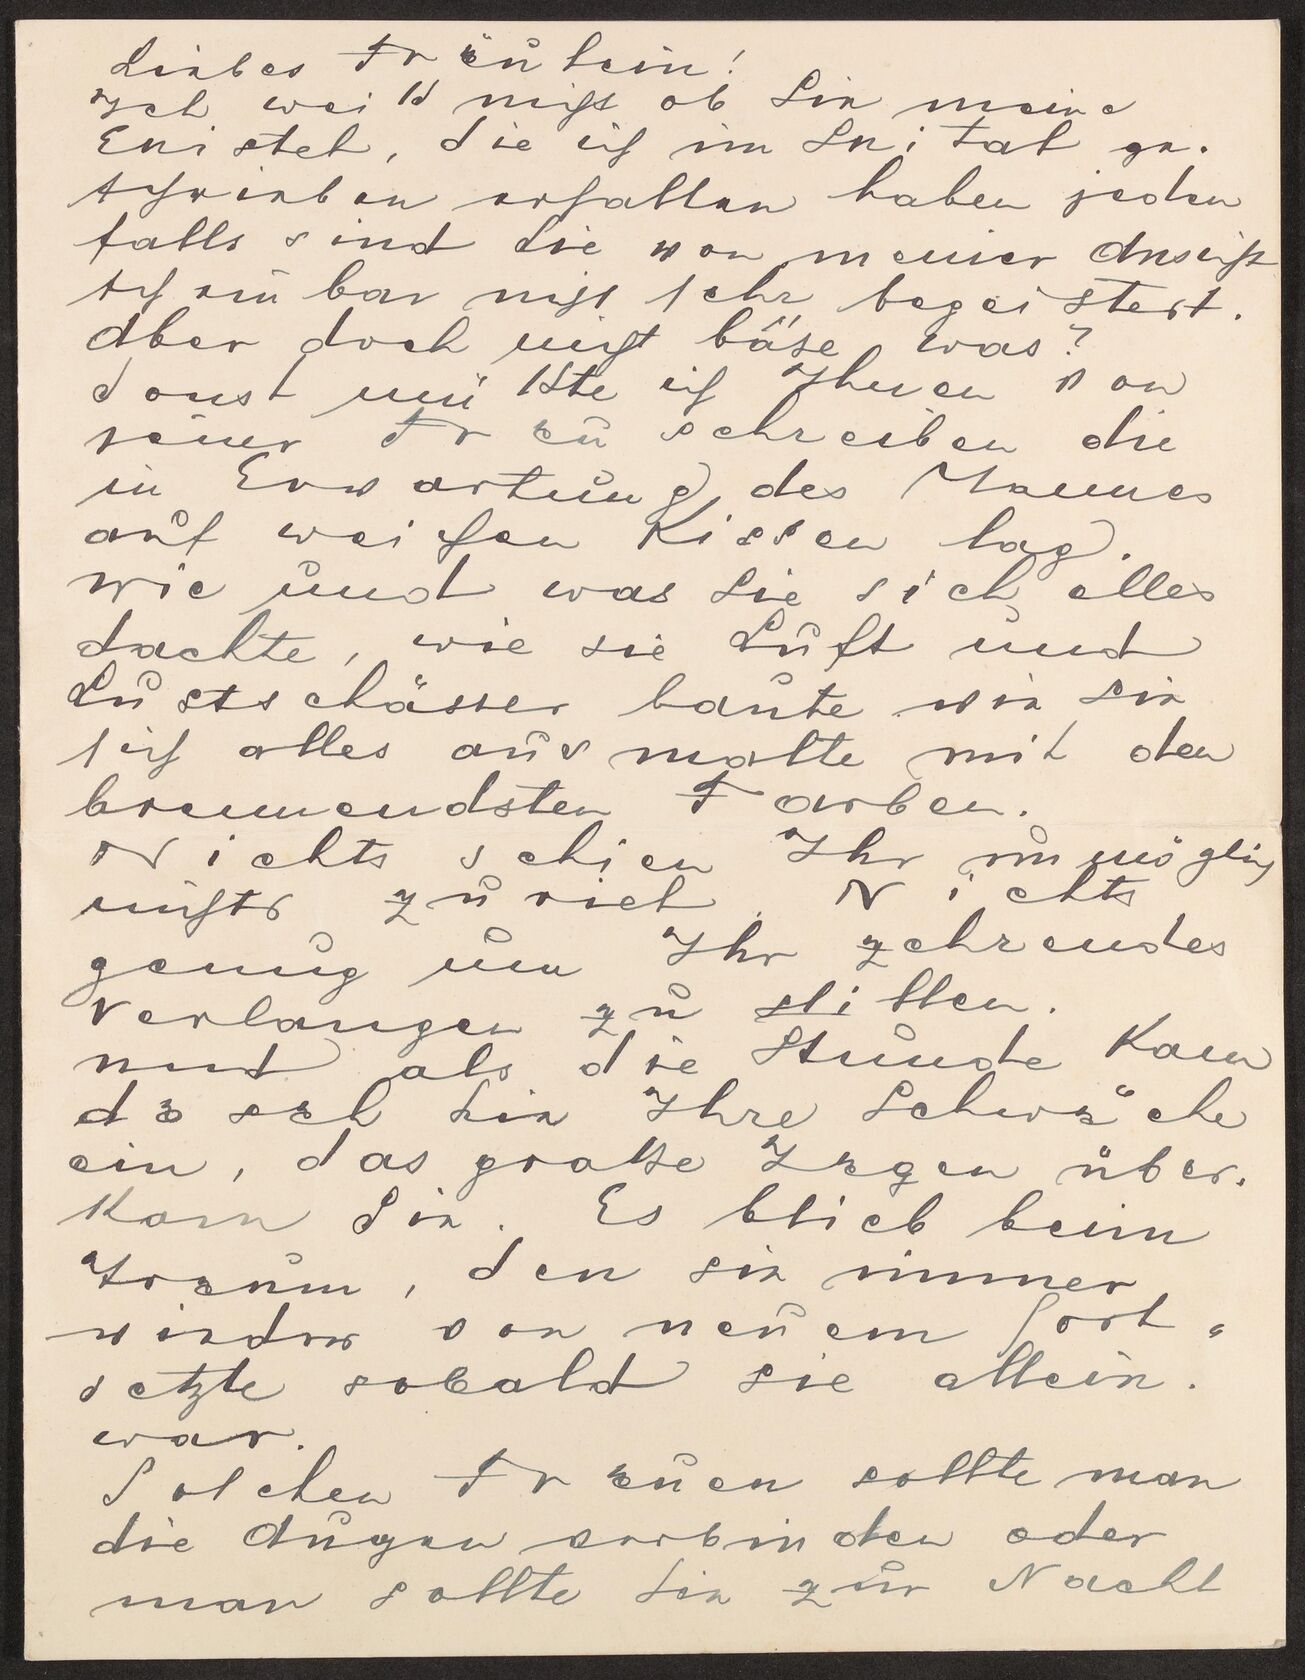 Liebes Fräulein!
Ich weiß nicht ob Sie meine
Epistel, die ich im Spital ge-
schrieben erhalten haben jeden
falls sind Sie von meiner Ansicht
scheinbar nicht sehr begeistert.
Aber doch nicht böse was?
Sonst müßte ich Ihnen von
jener Frau schreiben die
in Erwartung des Mannes
auf weißen Kissen lag.
Wie und was Sie sich alles
dachte, wie sie Luft und
Lustschlösser baute wie Sie
sich alles ausmalte mit den
brennendsten Farben.
Nichts schien Ihr unmöglich
nichts zu viel. Nichts
genug um Ihr zehrendes
Verlangen zu stillen.
Und als die Stunde kam
da sah Sie Ihre Schwäche
ein, das große Zagen über-
kam Sie. Es blieb beim
Traum, den sie immer
wieder von neuem fort-
setzte sobald sie allein
war.
Solchen Frauen sollte man
die Augen verbinden oder
man sollte Sie zur Nacht